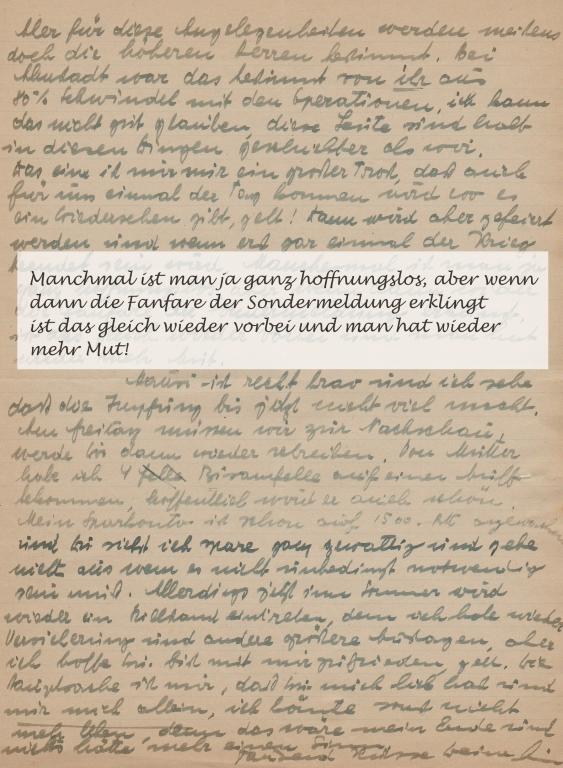 Aber für diese Angelegenheiten werden meistens
doch die höheren Herren bestimmt. Bei
war das bestimmt von ihr aus
80% Schwindel mit den Operationen, ich kann
das nicht gut glauben, diese Leute sind halt
in diesen Dingen als wir.
Das eine ist mir ein großer Trost, daß auch
für uns einmal der Tag kommen wird wo es
ein Wiedersehen gibt, gelt! Dann wird aber gefeiert
werden und wenn erst gar einmal der Krieg
Manchmal ist man ja ganz hoffnungslos, aber wenn
dann die Fanfare der Sondermeldung erklingt
ist das gleich wieder vorbei und man hat wieder
mehr Mut!
ist recht brav und ich sehe
daß die Impfung bis jetzt nicht viel macht.
Am Freitag müssen wir zur Nachschau,
werde bis dann wieder schreiben. Von Mutter
habe ich 4 Bisamfelle auf einen
bekommen, hoffentlich wird er auch schön.
Mein Sparkonto ist schon auf 1500.-
und Du siehst ich spare ganz gewaltig und gebe
nicht aus wenn es nicht unbedingt notwendig
sein muß. Allerdings jetzt im Sommer wird
wieder ein Stillstand eintreten, denn ich habe wieder
Versicherung und andere größere Auslagen, aber
ich hoffe Du bist mit mir zufrieden, gell. Die
Hauptsache ist mir, daß Du mich lieb hast und
mir mich allein, ich könnte sonst nicht
mehr leben, denn das wäre mein Ende und
nichts hätte mehr einen Sinn.
Tausend Küsse Deine